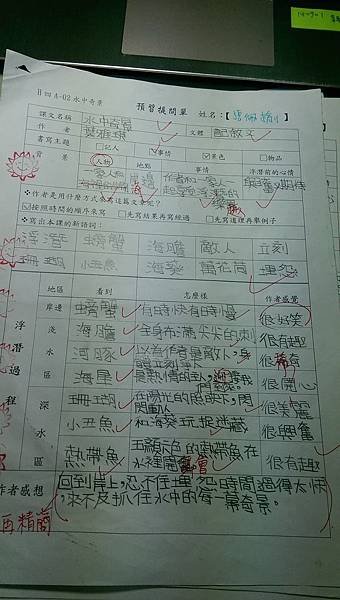 B四A-02水中奇景
預習提問單 姓名：【
課文名稱 水中奇景
作者 葉雅琪 文體 記敘文
書寫主題 □記人 ☑事情 ☑景色 □物品
背景 人物 地點 事情 浮潛前的心情
興奮又期待
❖作者是用什麼方式來寫這篇文章呢？
☑按照時間的順序來寫 □先寫結果再寫經過 □先寫道理再舉例子
❖寫出本課的新語詞：
浮潛 螃蟹 海膽 敵人 立刻
珊瑚 小丑魚 海葵 萬花筒 埋怨
浮潛過程
地區 看到 怎麼樣 作者感覺
岸邊 螃蟹 有時快有時慢 很好笑
淺水區 海膽 全身布滿尖尖的刺 很有趣
河豚 以為作者是敵人，身體立刻 很稀奇
海星 最熱情的 很開心
深水區 珊瑚 在陽光的照映下，閃閃動人 很美麗
小丑魚 和海葵玩捉迷藏 很興奮
熱帶魚 五顏六色的熱帶魚在水裡開宴會 很有趣
作者感想 回到岸上，忍不住埋怨時間過得太快，來不及抓住水中的每一幕奇景。
再精簡